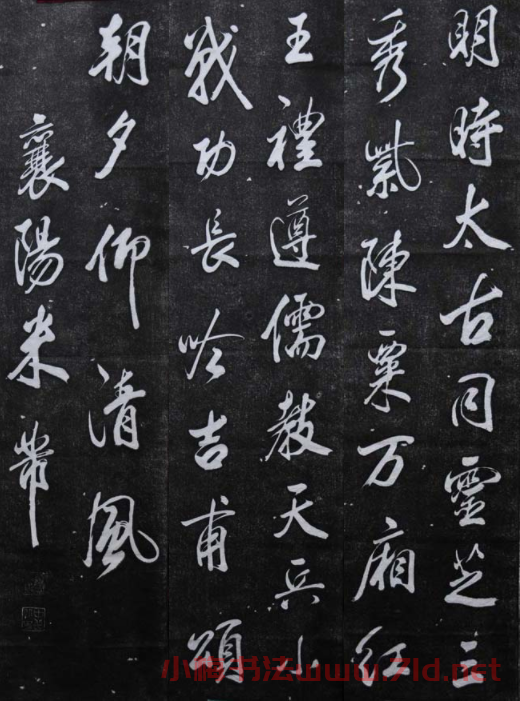 明時太古同靈芝三
秀紫陳粟万廂紅
王禮遵儒教天兵小
戰功長吟吉甫頌
朝夕仰清風
襄陽米芾
小楷书法www.7ld.net